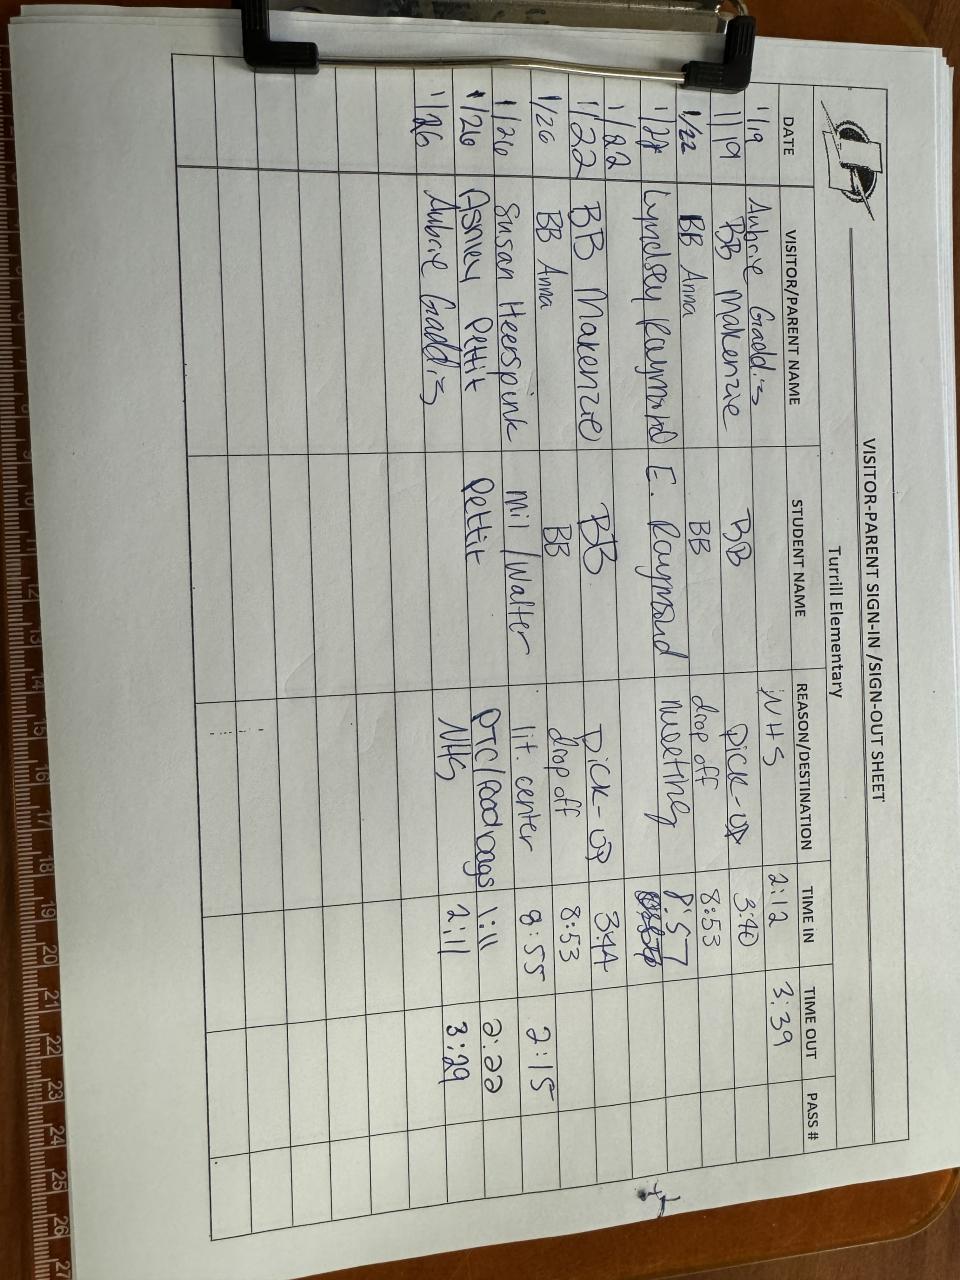 VISITOR-PARENT SIGN-IN /SIGN-OUT SHEET
Turrill Elementary
DATE VISITOR/PARENT NAME STUDENT NAME REASON/DESTINATION TIME IN TIME OUT PASS #
1/19 Aubrie Gaddis NHS 2:12 3:39
1/19 BB Makenzie BB Pick-up 3:40
1/22 BB Anna BB drop off 8:53
Lyndsey Raymond E. Raymond Meeting 8:57
1/22
1/22 BB Makenzie BB Pick-up 3:44
1/26 BB Anna BB drop off 8:53
1/26 Susan Heerspink Mil/Walter lit. center 8:55 2:15
1/26 Ashley Pettit Pettit PTC/Food bags 1:11 2:22
1/26 Aubrie Gaddis NHS 2:11 3:29
12 13 14 15 16 17 18 19 20 21 22 23 24 25 26 27